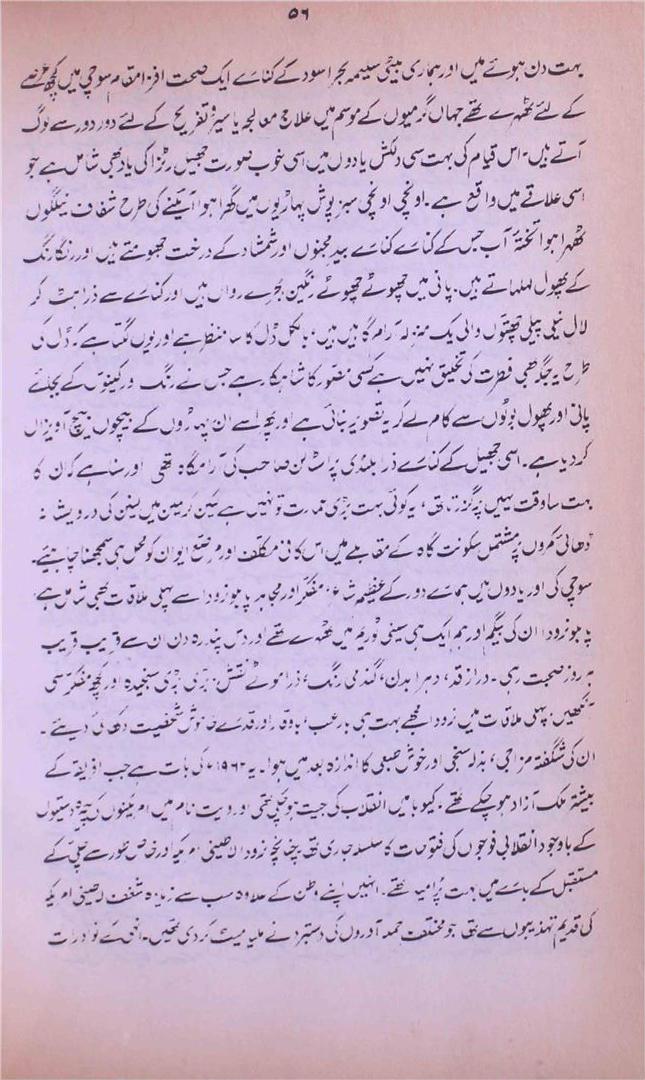 ۵۶
بہت دن ہوئے میں اور ہماری بیٹی سلیمہ بحر اسود کے کنارے ایک صحت افزا مقام سوچی میں کچھ عرصے
کے لئے ٹھہرے تھے جہاں گرمیوں کے موسم میں علاج معالجہ یا سیر و تفریح کے لئے دور دور سے لوگ
آتے ہیں۔ اس قیام کی بہت سی دلکش یادوں میں اسی خوب صورت جھیل رٹزا کی یاد بھی شامل ہے جو
اسی علاقے میں واقع ہے۔ اونچی اونچی سبز پوش پہاڑیوں میں گھرا ہوا آئینے کی طرح شفاف نیلگوں
ٹھہرا ہوا تختۂ آب جس کے کنارے کنارے بید مجنوں اور شمشاد کے درخت جھومتے ہیں اور رنگا رنگ
کے پھول لہلہاتے ہیں۔ پانی میں چھوٹے چھوٹے رنگین بجرے رواں ہیں اور کنارے سے ذرا ہٹ کر
لال نیلی پیلی چھتوں والی یک منزلہ آرام گاہیں ہیں، بالکل ڈل کا سا منظر ہے اور یوں لگتا ہے کہ ڈل کی
طرح یہ جگہ بھی فطرت کی تخلیق نہیں ہے کسی مصور کا شاہکار ہے جس نے رنگ و کینوس کے بجائے
پانی اور پھول بوٹوں سے کام لے کر یہ تصویر بنائی ہے اور پھر اسے ان پہاڑوں کے بیچوں بیچ آویزاں
کر دیا ہے۔ اسی جھیل کے کنارے ذرا بلندی پر اسٹالن صاحب کی آرام گاہ تھی اور سنا ہے کہ ان کا
بہت سا وقت یہیں پر گزرتا تھا، یہ کوئی بہت بڑی عمارت تو نہیں ہے لیکن کریملن میں لینن کی درویشانہ
ڈھائی کمروں پر مشتمل سکونت گاہ کے مقابلے میں اس کافی مکلف اور مرصع ایوان کو محل ہی سمجھنا چاہیئے۔
سوچی کی اور یادوں میں ہمارے دور کے عظیم شاعر، مفکر اور مجاہد پابلو نرودا سے پہلی ملاقات بھی شامل ہے
پابلو نرودا ان کی بیگم اور ہم ایک ہی سینی ٹوریم میں ٹھہرے تھے اور دس پندرہ دن ان سے قریب قریب
ہر روز صحبت رہی۔ دراز قد، دہرا بدن، گندمی رنگ، ذرا موٹے نقش، بڑی بڑی سنجیدہ اور کچھ مفکر سی
آنکھیں۔ پہلی ملاقات میں نرودا مجھے بہت ہی بارعب، باوقار اور قدرے خاموش شخصیت دکھائی دیئے۔
ان کی شگفتہ مزاجی، بذلہ سنجی اور خوش طبعی کا اندازہ بعد میں ہوا۔ یہ ۱۹۶۲ء کی بات ہے جب افریقہ کے
بیشتر ملک آزاد ہو چکے تھے۔ کیوبا میں انقلاب کی جیت ہو چکی تھی اور ویت نام میں امریکنوں کی چیرہ دستیوں
کے باوجود انقلابی فوجوں کی فتوحات کا سلسلہ جاری تھا چنانچہ نرودا لاطینی امریکہ اور خاص طور سے چلی کے
مستقبل کے بارے میں بہت پُرامید تھے۔ انہیں اپنے وطن کے علاوہ سب سے زیادہ شغف لاطینی امریکہ
کی قدیم تہذیبوں سے تھا جو مختلف حملہ آوروں کی دستبرد نے ملیا میٹ کر دی تھیں۔ انہی کے نوادرات